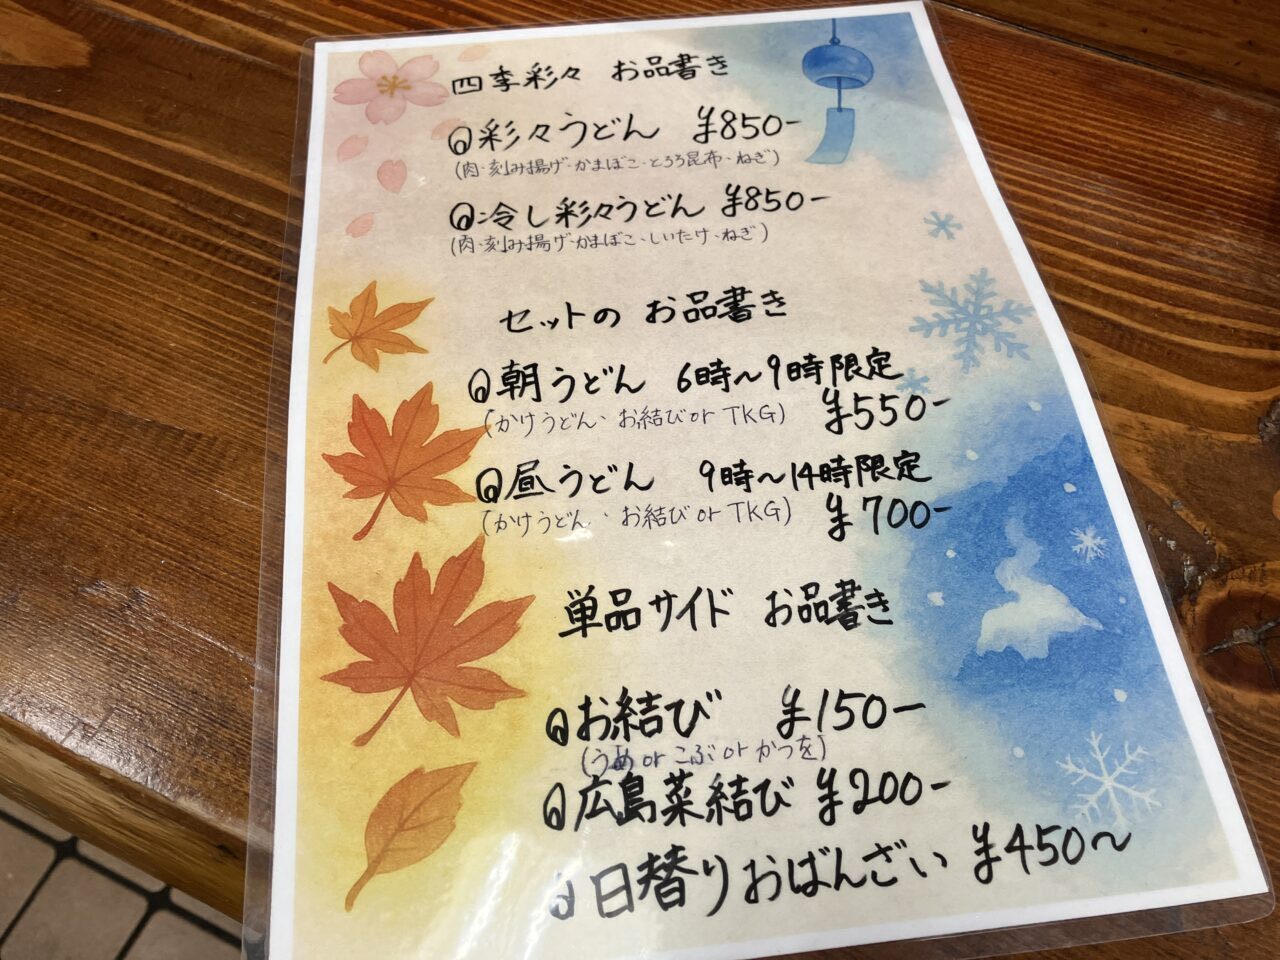 四季彩々 お品書き
彩々うどん ¥850-
(肉・刻み揚げ・かまぼこ・とろろ昆布・ねぎ)
冷し彩々うどん ¥850-
(肉・刻み揚げ・かまぼこ・しいたけ・ねぎ)
セットの お品書き
朝うどん 6時~9時限定
(かけうどん、お結び or TKG) ¥550-
昼うどん 9時~14時限定
(かけうどん、お結び or TKG) ¥700-
単品サイド お品書き
お結び ¥150-
(うめ or こぶ or かつを)
広島菜結び ¥200-
日替りおばんざい ¥450~